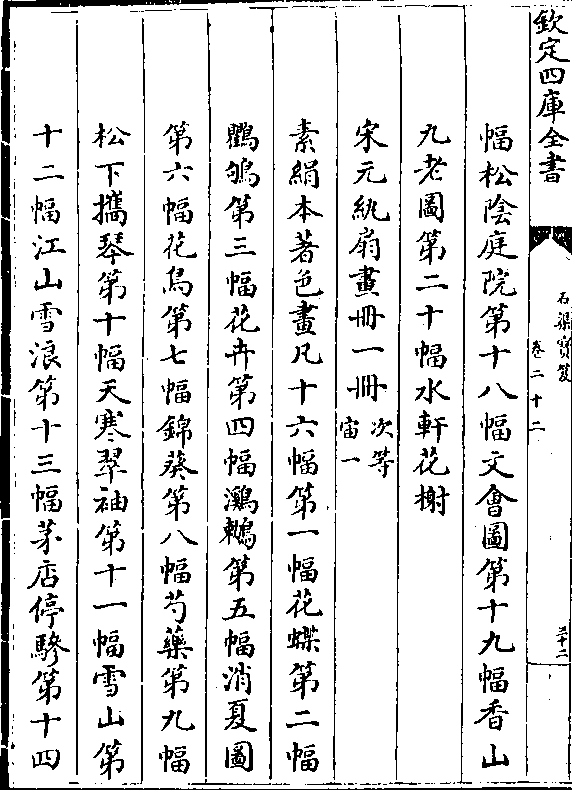 欽定四庫全書
石渠寶笈
卷二十二
三十二
幅松陰庭院第十八幅文會圖第十九幅香山
九老圖第二十幅水軒花榭
宋元紈扇畫冊一冊 次等 宙一
素絹本著色畫凡十六幅第一幅花蝶第二幅
鸜鵒第三幅花卉第四幅鸂鶒第五幅消夏圖
第六幅花鳥第七幅錦葵第八幅芍藥第九幅
松下攜琴第十幅天寒翠袖第十一幅雪山第
十二幅江山雪浪第十三幅茅店停驂第十四